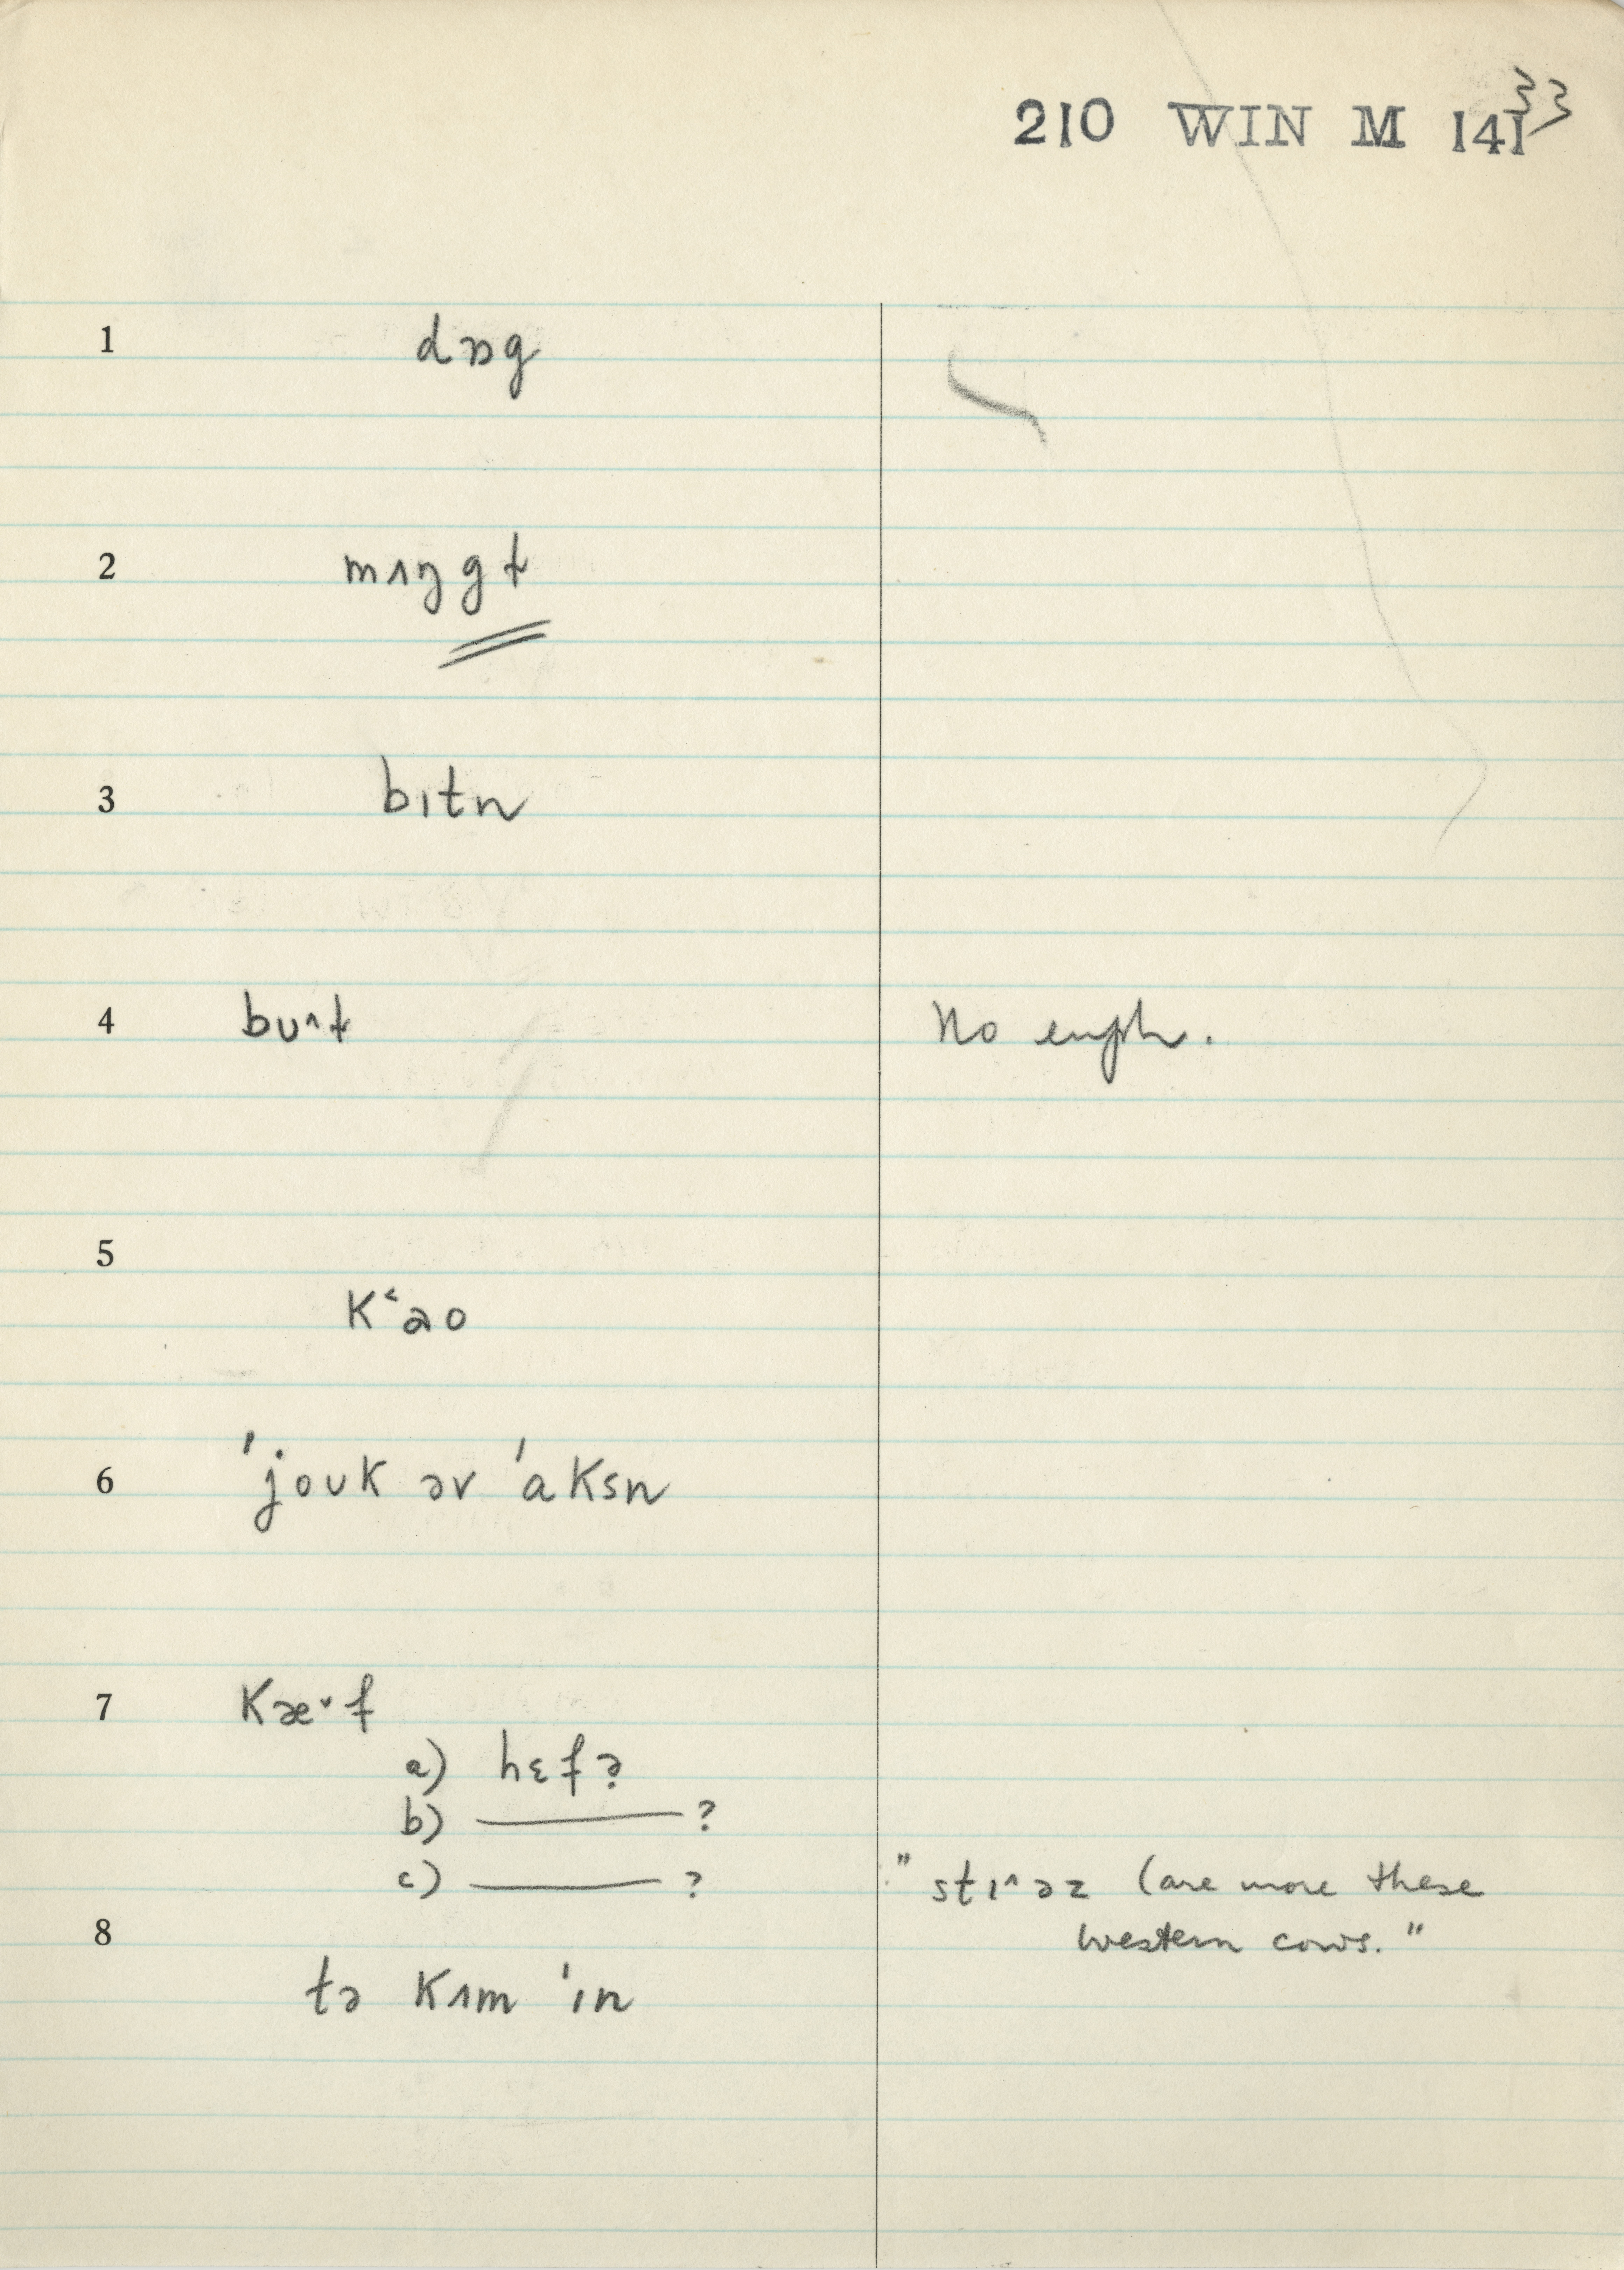 210 WIN M 141 33
1 dɒg
2 mʌŋgɫ
3 bɪtn
4 bʊ^ɫ No euph.
5
Kʻao
6 ˈjoʊk əv ˈaksn
7 Kæ˅f
a) hɛfɚ
b) ——— ?
c) ——— ?
" stɪ^əz (are more these
western cows."
8
tə Kʌm ˈɪn